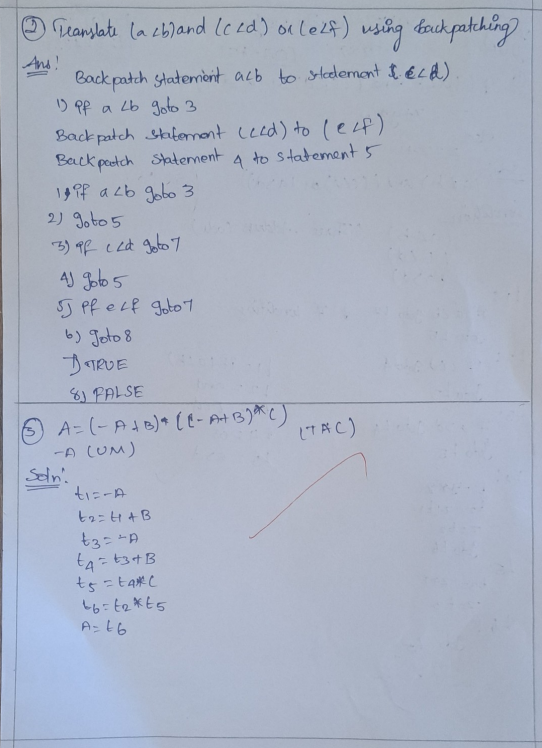 ② Translate (a<b) and (c<d) or (e<f) using backpatching
Ans:
Backpatch statement a<b to statement
1) if a<b goto 3
Backpatch statement (c<d) to (e<f)
Backpatch statement 4 to statement 5
1) if a<b goto 3
2) goto 5
3) if c<d goto 7
4) goto 5
5) if e<f goto 7
6) goto 8
7) TRUE
8) FALSE
③ A=(-A+B)*((-A+B)*C) (TAC)
-A (UM)
Soln:
t1=-A
t2=t1+B
t3=-A
t4=t3+B
t5=t4*C
t6=t2*t5
A=t6